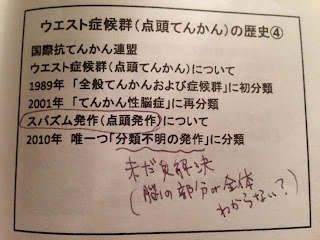 ウエスト症候群（点頭てんかん）の歴史④
国際抗てんかん連盟
ウエスト症候群（点頭てんかん）について
1989年「全般てんかんおよび症候群」に初分類
2001年「てんかん性脳症」に再分類
スパズム発作（点頭発作）について
2010年 唯一つ「分類不明の発作」に分類
未だ未解決
（脳の部分か全体
わからない？）